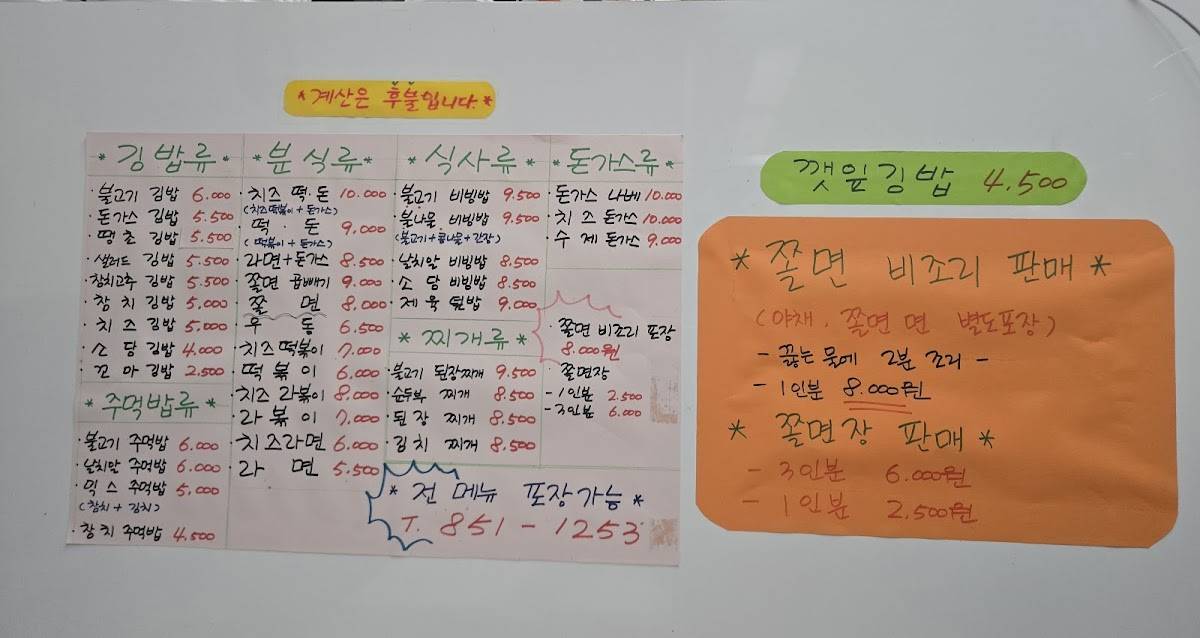 *계산은 후불입니다.*
* 김밥류 *
· 불고기 김밥 6.000
· 돈가스 김밥 5.500
· 땡초 김밥 5.500
· 샐러드 김밥 5.500
· 참치고추 김밥 5.500
· 참치 김밥 5.000
· 치즈 김밥 5.000
· 소당 김밥 4.000
· 꼬마 김밥 2.500
* 주먹밥류 *
· 불고기 주먹밥 6.000
· 날치알 주먹밥 6.000
· 믹스 주먹밥 5.000
(참치 + 김치)
· 참치 주먹밥 4.500
* 분식류 *
· 치즈 떡·돈 10.000
(치즈떡볶이 + 돈가스)
· 떡·돈 9.000
(떡볶이 + 돈가스)
· 라면+돈가스 8.500
· 쫄면 곱빼기 9.000
· 쫄면 8.000
· 우동 6.500
· 치즈떡볶이 7.000
· 떡볶이 6.000
· 치즈 라볶이 8.000
· 라볶이 7.000
· 치즈라면 6.000
· 라면 5.500
* 식사류 *
· 불고기 비빔밥 9.500
· 불나물 비빔밥 9.500
(불고기+콩나물+간장)
· 날치알 비빔밥 8.500
· 소당 비빔밥 8.500
· 제육덮밥 9.000
* 찌개류 *
· 불고기 된장찌개 9.500
· 순두부 찌개 8.500
· 된장 찌개 8.500
· 김치 찌개 8.500
* 돈가스류 *
· 돈가스 나베 10.000
· 치즈 돈가스 10.000
· 수제 돈가스 9.000
· 쫄면 비조리 포장
8.000원
· 쫄면장
- 1인분 2.500
- 3인분 6.000
* 전 메뉴 포장가능 *
T. 851-1253
깻잎김밥 4.500
* 쫄면 비조리 판매 *
(야채, 쫄면 면 별도포장)
- 끓는 물에 2분 조리 -
- 1인분 8.000원
* 쫄면장 판매 *
- 3인분 6.000원
- 1인분 2.500원